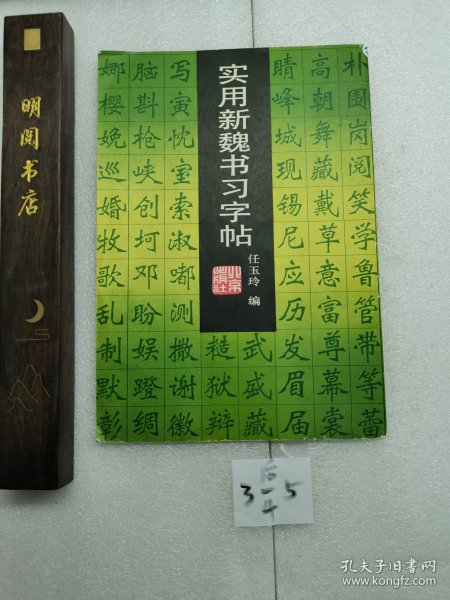 明阅书店
实用新魏书习字帖
任玉玲 编
北京
出版社
朴围岗阅笑学鲁管带等蕾
高朝舞藏戴草意富尊幕裳
晴峰城现锡尼应历发眉届
武盛藏
糙狱辩
写寅忱室索淑嘟测撒谢徽
脑斟枪峡创坷邓盼娱蹬绸
娜樱娩巡婚牧歌乱制默彰
后
3 一 5
孔夫子旧书网
www.kongfz.com